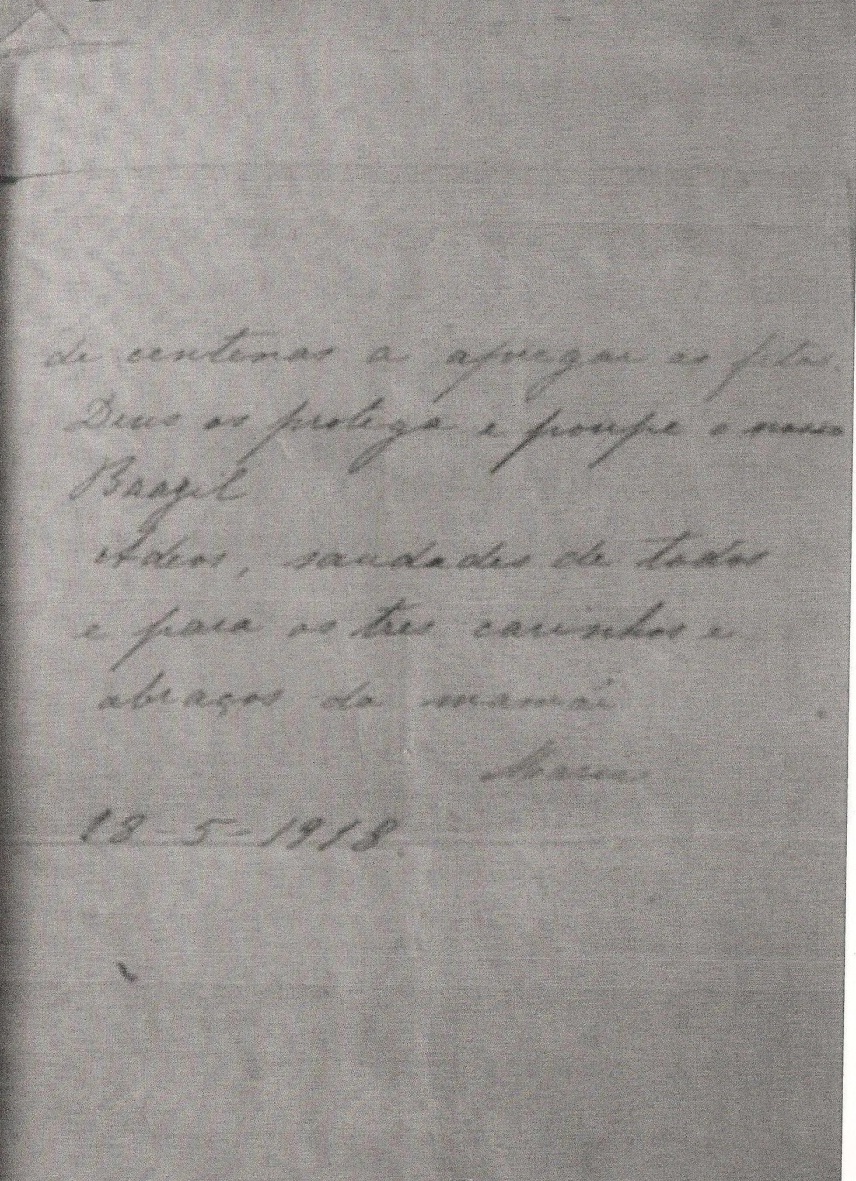 de centenas a apregar as fitas.
Deus os protega e poupe o nosso
Brazil
Adeos, saudades de todos
e para os tres carinhos e
abraços da mamãi
Maria
18-5-1918.